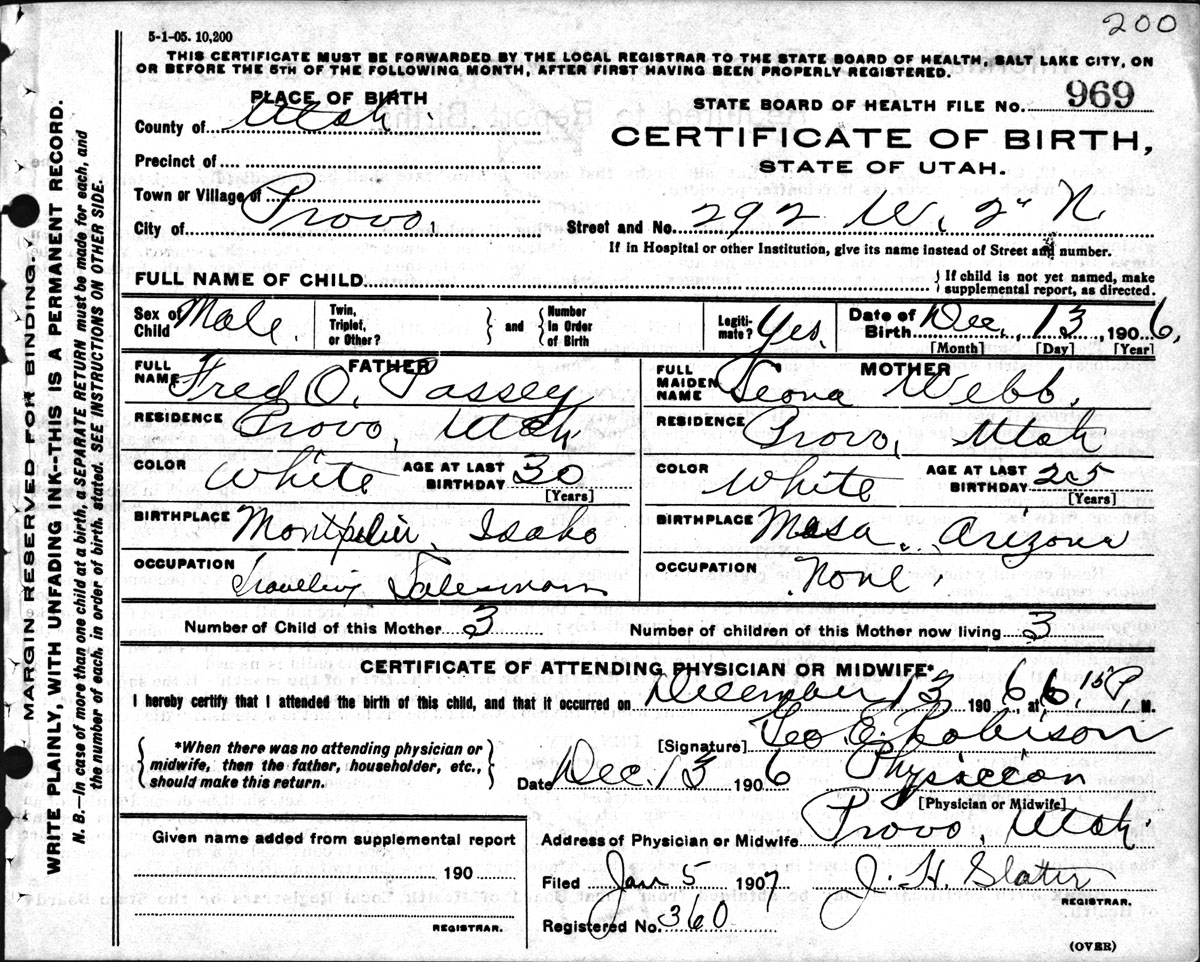 200
5-1-05. 10,200
THIS CERTIFICATE MUST BE FORWARDED BY THE LOCAL REGISTRAR TO THE STATE BOARD OF HEALTH, SALT LAKE CITY, ON
OR BEFORE THE 5TH OF THE FOLLOWING MONTH, AFTER FIRST HAVING BEEN PROPERLY REGISTERED.
MARGIN RESERVED FOR BINDING.
WRITE PLAINLY, WITH UNFADING INK--THIS IS A PERMANENT RECORD.
N. B.—In case of more than one child at a birth, a SEPARATE RETURN must be made for each, and
the number of each, in order of birth, stated. SEE INSTRUCTIONS ON OTHER SIDE.
PLACE OF BIRTH
County of Utah.
Precinct of
Town or Village of
City of Provo.
STATE BOARD OF HEALTH FILE NO. 969
CERTIFICATE OF BIRTH,
STATE OF UTAH.
Street and No. 292 W. 2" N
If in Hospital or other Institution, give its name instead of Street and number.
FULL NAME OF CHILD
{ If child is not yet named, make
supplemental report, as directed.
Sex of Child Male.
Twin, Triplet, or Other? } and { Number In Order of Birth
Legitimate? Yes.
Date of Birth Dec, 13, 1906,
[Month] [Day] [Year]
FATHER
FULL NAME Fred O. Passey
RESIDENCE Provo, Utah
COLOR White AGE AT LAST BIRTHDAY 30 [Years]
BIRTHPLACE Montpelier, Idaho
OCCUPATION Travelling Salesman
MOTHER
FULL MAIDEN NAME Leona Webb.
RESIDENCE Provo, Utah
COLOR White AGE AT LAST BIRTHDAY 25 [Years]
BIRTHPLACE Mesa, Arizona
OCCUPATION None
Number of Child of this Mother 3
Number of children of this Mother now living 3
CERTIFICATE OF ATTENDING PHYSICIAN OR MIDWIFE*
I hereby certify that I attended the birth of this child, and that it occurred on December 13 1906, at 6,15 P. M.
{ *When there was no attending physician or
midwife, then the father, householder, etc.,
should make this return. }
[Signature] Geo. E. Robison
Date Dec. 13 1906 Physician
[Physician or Midwife]
Given name added from supplemental report
190
REGISTRAR.
Address of Physician or Midwife Provo, Utah
Filed Jan 5 1907 J. H. Slater
REGISTRAR.
Registered No. 360
(OVER)